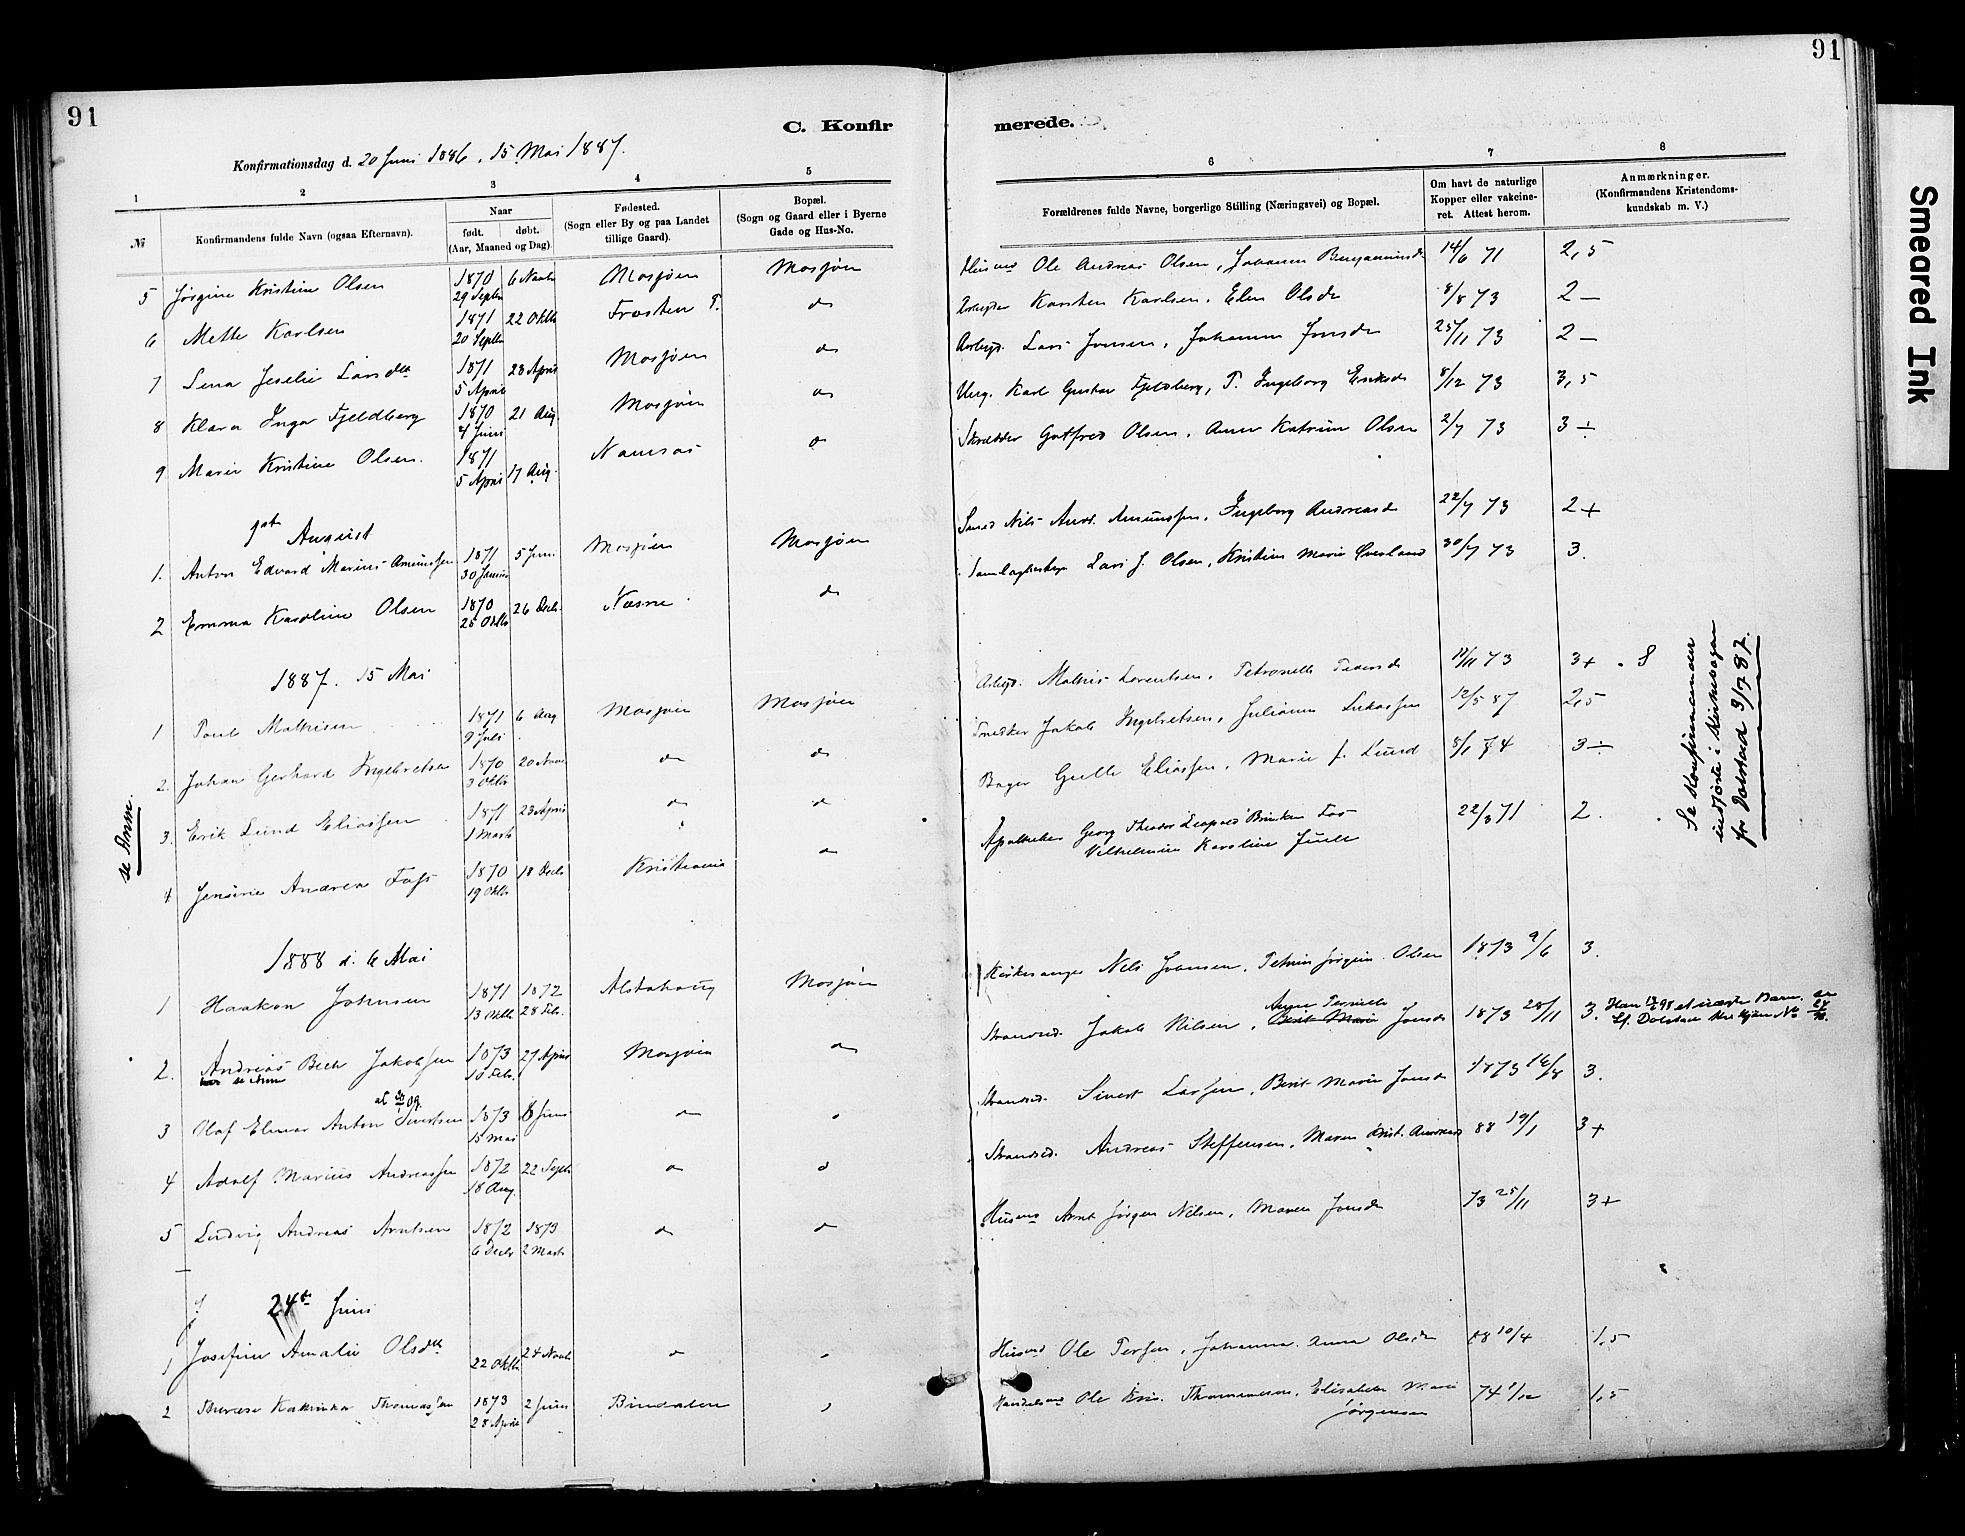 91
91
C. Konfir
merede.
Smeared Ink
Konfirmationsdag d. 20 Juni 1886, 15 Mai 1887.
1 2 3 4 5 6 7 8
№
Konfirmandens fulde Navn (ogsaa Efternavn).
Naar
født. døbt.
(Aar, Maaned og Dag).
Fødested.
(Sogn eller By og paa Landet
tillige Gaard).
Bopæl.
(Sogn og Gaard eller i Byerne
Gade og Hus-No.
Forældrenes fulde Navne, borgerlige Stilling (Næringsvei) og Bopæl.
Om havt de naturlige
Kopper eller vakcine-
ret. Attest herom.
Anmærkninger.
(Konfirmandens Kristendoms-
kundskab m. V.)
5 Jørgine Kristine Olsen 1870 29 Septbr 6 Novbr Mosjøen Mosjøen Husmd Ole Andreas Olsen, Johanna Benjaminsdr 14/6 71 2,5
6 Mette Karlsen 1871 20 Septbr 22 Oktbr Frosten P. do Arbeider Karsten Karlsen, Elen Olsdr 8/8 73 2 —
7 Lena Jeselie Larsdtr 1871 5 April 23 April Mosjøen do Arbejd. Lars Jonsen, Johanna Jonsdr 25/11 73 2 —
8 Klara Inga Fjeldberg 1870 4 Juni 21 Aug Mosjøen do Karl Gustav Fjeldberg, P. Ingeborg Eriksdr 8/12 73 3,5
9 Marie Kristine Olsen. 1871 5 April 17 Aug. Namsos do Skrædder Gotfred Olsen, Anna Katrine Olsen 2/7 73 3 ÷
1ste August
1. Anton Edvard Marius Amundsen 1871 30 Januar 5 Juni Mosjøen Mosjøen Smed Nils Andr. Amundsen, Ingeborg Andreasd 22/7 73 2 +
2 Emma Karoline Olsen 1870 25 Oktbr 26 Decbr. Næsne do Lars J. Olsen, Kristine Marie Overland 30/7 73 3.
1887. 15 Mai
1 Poul Mathisen 1871 9 Juli 6 Aug Mosjøen Mosjøen Arbejd. Mathis Lorentsen, Petronelle Pedersdr 3+
2. Johan Gerhard Ingebretsen 1870 3 Oktbr 20 Novr do do Snedker Jakob Ingebretsen, Julianna Lukassen 12/5 87 2,5
3. Erik Lund Eliassen 1871 1 Marts 23 April do do Bager Elias­sen, Marie f. Lund 8/1 74 3 ÷
se Anm.
4 Jensine Andrea Foss 1870 19 Oktbr 18 Decbr Kristiania do Apotheker Georg Theodor Leopold Brinken Foss
Vilhelmine Karoline Juell 22/3 71 2.
Se Konfirmander
indførte i Kirkebogen
for Dolstad 3/7 87.
1888 d. 6 Mai
1 Haakon Johnsen 1871 13 Oktbr 1872 28 Feb. Alstahoug Mosjøen Kirkesanger Nils Johnsen, Petrine Jørgine Olsen 1873 9/6 3.
2. Andreas Bech Jakobsen 1873 10 Feb. 27 April Mosjøen do Strandsd. Jakob Nilsen, Anne Pernille Berit Marie Jonsdr 1873 28/11 3.
se Anm
3 Olaf Elmar Anton Sivertsen 1873 15 Mai 8 Juni do Strandsd. Sivert Larsen, Berit Marie Jonsdr 1873 16/8 3.
4 Adolf Marius Andreassen 1872 18 Aug. 22 Septb. do do Strandsd. Andreas Steffensen, Maren Krist. Andreasd 88 19/1 3+
5 Ludvig Andreas Arntsen 1872 6 Decbr 1873 2 Marts do do Husmd Arnt Jørgen Nilsen, Maren Jonsdr 73 25/11 3+
24de Juni
1 Josefine Amalie Olsdtr 22 Oktbr 24 Novbr do Husmd Ole Persen, Johanna Anna Olsdr 88 10/4 1,5
2 Therese Kathrinka Thomassen 1873 28 April 2 Juni Bindalen Handelsmd Ole Kris. Thommesen, Elisabeth Marie
Jørgensen 1,5